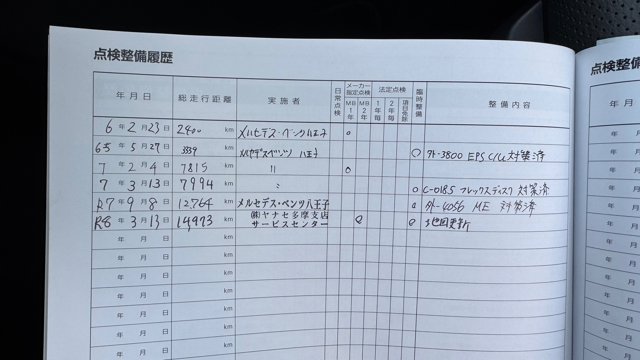 点検整備履歴
点検整備
年月日 総走行距離 実施者 日常点検 メーカー指定点検 MB1年 MB2年 法定点検 1年毎 2年毎 項目免除 臨時整備 整備内容
6年2月23日 2400 km メルセデス・ベンツ八王子 ○
65年5月27日 3339 km メルセデスベンツ 八王子 ○ 外-3800 EPS C/U 対策済
7年2月4日 7815 km 〃 ○
7年3月13日 7994 km 〃 ○ C-0185 フレックスディスク 対策済
R7年9月8日 12,764 km メルセデス・ベンツ八王子 ○ 外-4056 ME 対策済
R8年3月13日 14,973 km ㈱ヤナセ多摩支店 サービスセンター ○ ○ 地図更新
年 月 日 km
年 月 日 km
年 月 日 km
年 月 日 km
年 月 日 km
年 月 日 km
年 月 日 km